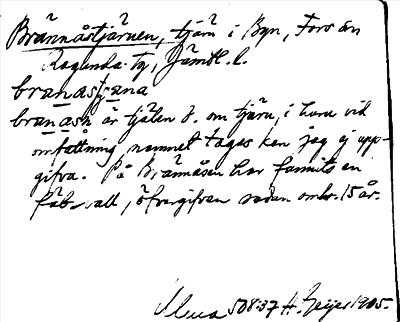 Brännåstjärnen, tjärn i Byn, Fors sn
Ragunda tg, Jämtl. l.
branastjana
branasn är tjälen ö. om tjärn, i huru vid
omfattning namnet tages kan jag ej upp-
gifva. På Brännåsen har funnits en
fäb-vall, öfvergifven sedan omkr. 15 år.
508:37 H. Geijer 1905.